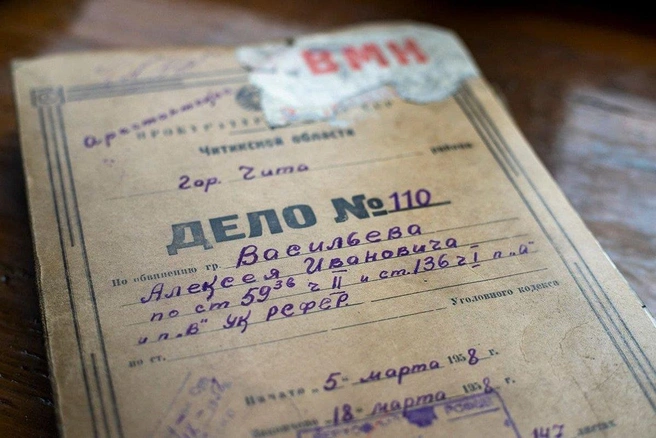 ВМН
Читинской области
гор. Чита района
ДЕЛО № 110
По обвинению гр. Васильева
Алексея Ивановича
по ст 59³⁶ ч II и ст. 136 ч I п „а“
и п. „в“ УК РСФСР
по ст. Уголовного кодекса
Начато „5“ марта 1958 г.
„18“ марта 1958 г.
147 листах